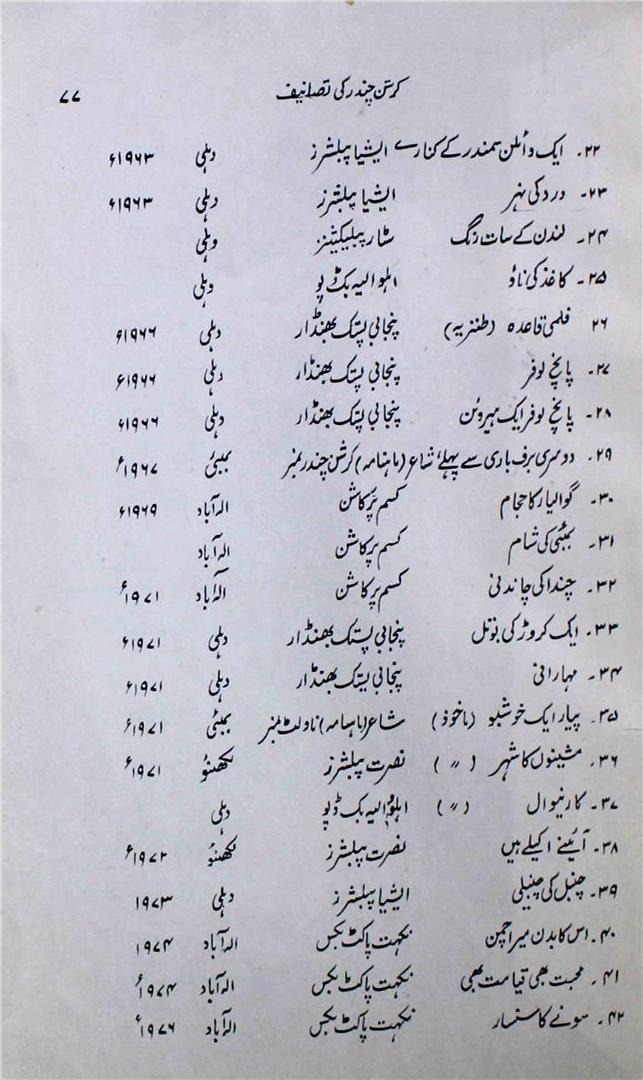 کرشن چندر کی تصانیف ۷۷
۲۲۔ ایک وائلن سمندر کے کنارے ایشیا پبلشرز دہلی ۱۹۶۳ء
۲۳۔ درد کی نہر ایشیا پبلشرز دہلی ۱۹۶۳ء
۲۴۔ لندن کے سات رنگ سٹار پبلیکیشنز دہلی
۲۵۔ کاغذ کی ناؤ اہلووالیہ بک ڈپو دہلی
۲۶ فلمی قاعدہ (طنزیہ) پنجابی پستک بھنڈار دہلی ۱۹۶۶ء
۲۷۔ پانچ لوفر پنجابی پستک بھنڈار دہلی ۱۹۶۶ء
۲۸۔ پانچ لوفر ایک ہیروئن پنجابی پستک بھنڈار دہلی ۱۹۶۶ء
۲۹۔ دوسری برف باری سے پہلے، شاعر (ماہنامہ) کرشن چندر نمبر بمبئی ۱۹۶۷ء
۳۰۔ گوالیار کا حجام کسم پرکاشن الہ آباد ۱۹۶۹ء
۳۱۔ بمبئی کی شام کسم پرکاشن الہ آباد
۳۲۔ چندا کی چاندنی کسم پرکاشن الہ آباد ۱۹۷۱ء
۳۳۔ ایک کروڑ کی بوتل پنجابی پستک بھنڈار دہلی ۱۹۷۱ء
۳۴۔ مہارانی پنجابی پستک بھنڈار دہلی ۱۹۷۱ء
۳۵۔ پیار ایک خوشبو (ماخوذ) شاعر (ماہنامہ) ناولٹ نمبر بمبئی ۱۹۷۱ء
۳۶۔ مشینوں کا شہر (〃) نصرت پبلشرز لکھنؤ ۱۹۷۱ء
۳۷۔ کارنیوال (〃) اہلووالیہ بک ڈپو دہلی
۳۸۔ آئینے اکیلے ہیں نصرت پبلشرز لکھنؤ ۱۹۷۲ء
۳۹۔ چنبل کی چنبیلی ایشیا پبلشرز دہلی ۱۹۷۳
۴۰۔ اس کا بدن میرا چمن نکہت پاکٹ بکس الہ آباد ۱۹۷۴
۴۱۔ محبت بھی قیامت بھی نکہت پاکٹ بکس الہ آباد ۱۹۷۴ء
۴۲۔ سونے کا سنسار نکہت پاکٹ بکس الہ آباد ۱۹۷۶ء